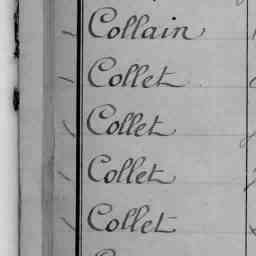 Collain
Collet
Collet
Collet
Collet